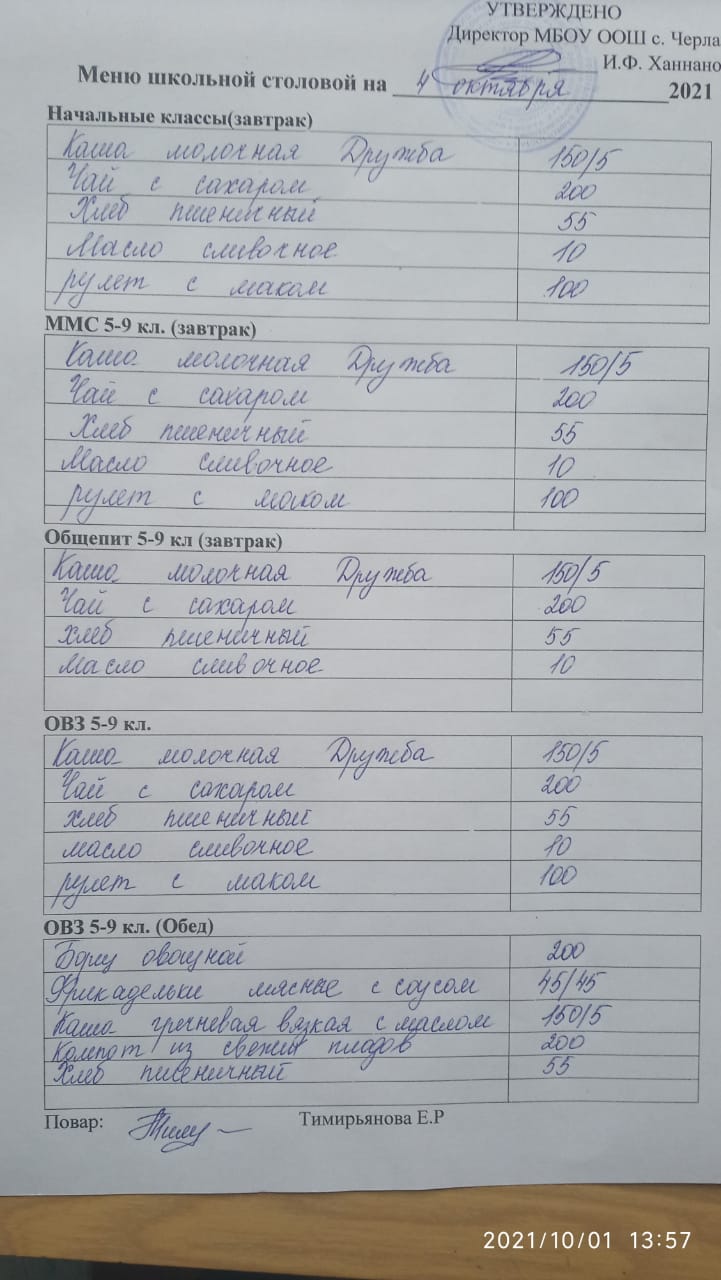 УТВЕРЖДЕНО
Директор МБОУ ООШ с. Черла
И.Ф. Ханнано
Меню школьной столовой на 4 октября 2021
Начальные классы(завтрак)
Каша молочная Дружба 150/5
Чай с сахаром 200
Хлеб пшеничный 55
Масло сливочное 10
рулет с маком 100
ММС 5-9 кл. (завтрак)
Каша молочная Дружба 150/5
Чай с сахаром 200
Хлеб пшеничный 55
Масло сливочное 10
рулет с маком 100
Общепит 5-9 кл (завтрак)
Каша молочная Дружба 150/5
Чай с сахаром 200
хлеб пшеничный 55
Масло сливочное 10
ОВЗ 5-9 кл.
Каша молочная Дружба 150/5
Чай с сахаром 200
хлеб пшеничный 55
масло сливочное 10
рулет с маком 100
ОВЗ 5-9 кл. (Обед)
Борщ овощной 200
Фрикадельки мясные с соусом 45/45
Каша гречневая вязкая с маслом 150/5
Компот из свежих плодов 200
Хлеб пшеничный 55
Повар: Тимирьянова Е.Р
2021/10/01 13:57